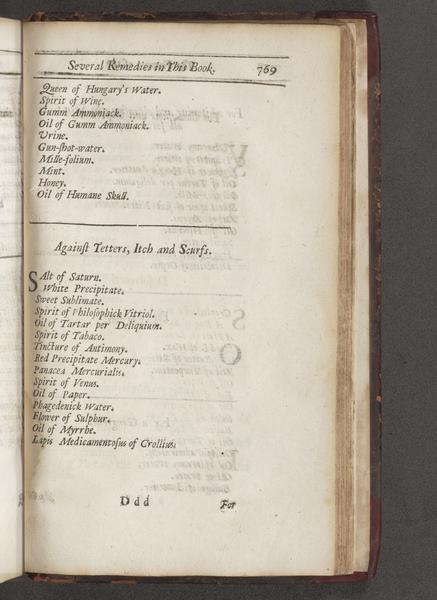 Several Remedies in This Book. 769
Queen of Hungary's Water.
Spirit of Wine.
Gumm Ammoniack.
Oil of Gumm Ammoniack.
Urine.
Gun-ſhot-water.
Mille-folium.
Mint.
Honey.
Oil of Humane Skull.
Againſt Tetters, Itch and Scurfs.
SAlt of Saturn.
White Precipitate.
Sweet Sublimate.
Spirit of Philoſophick Vitriol.
Oil of Tartar per Deliquium.
Spirit of Tabaco.
Tincture of Antimony.
Red Precipitate Mercury.
Panacea Mercurialis.
Spirit of Venus.
Oil of Paper.
Phagedenick Water.
Flower of Sulphur.
Oil of Myrrhe.
Lapis Medicamentoſus of Crollius.
Ddd For